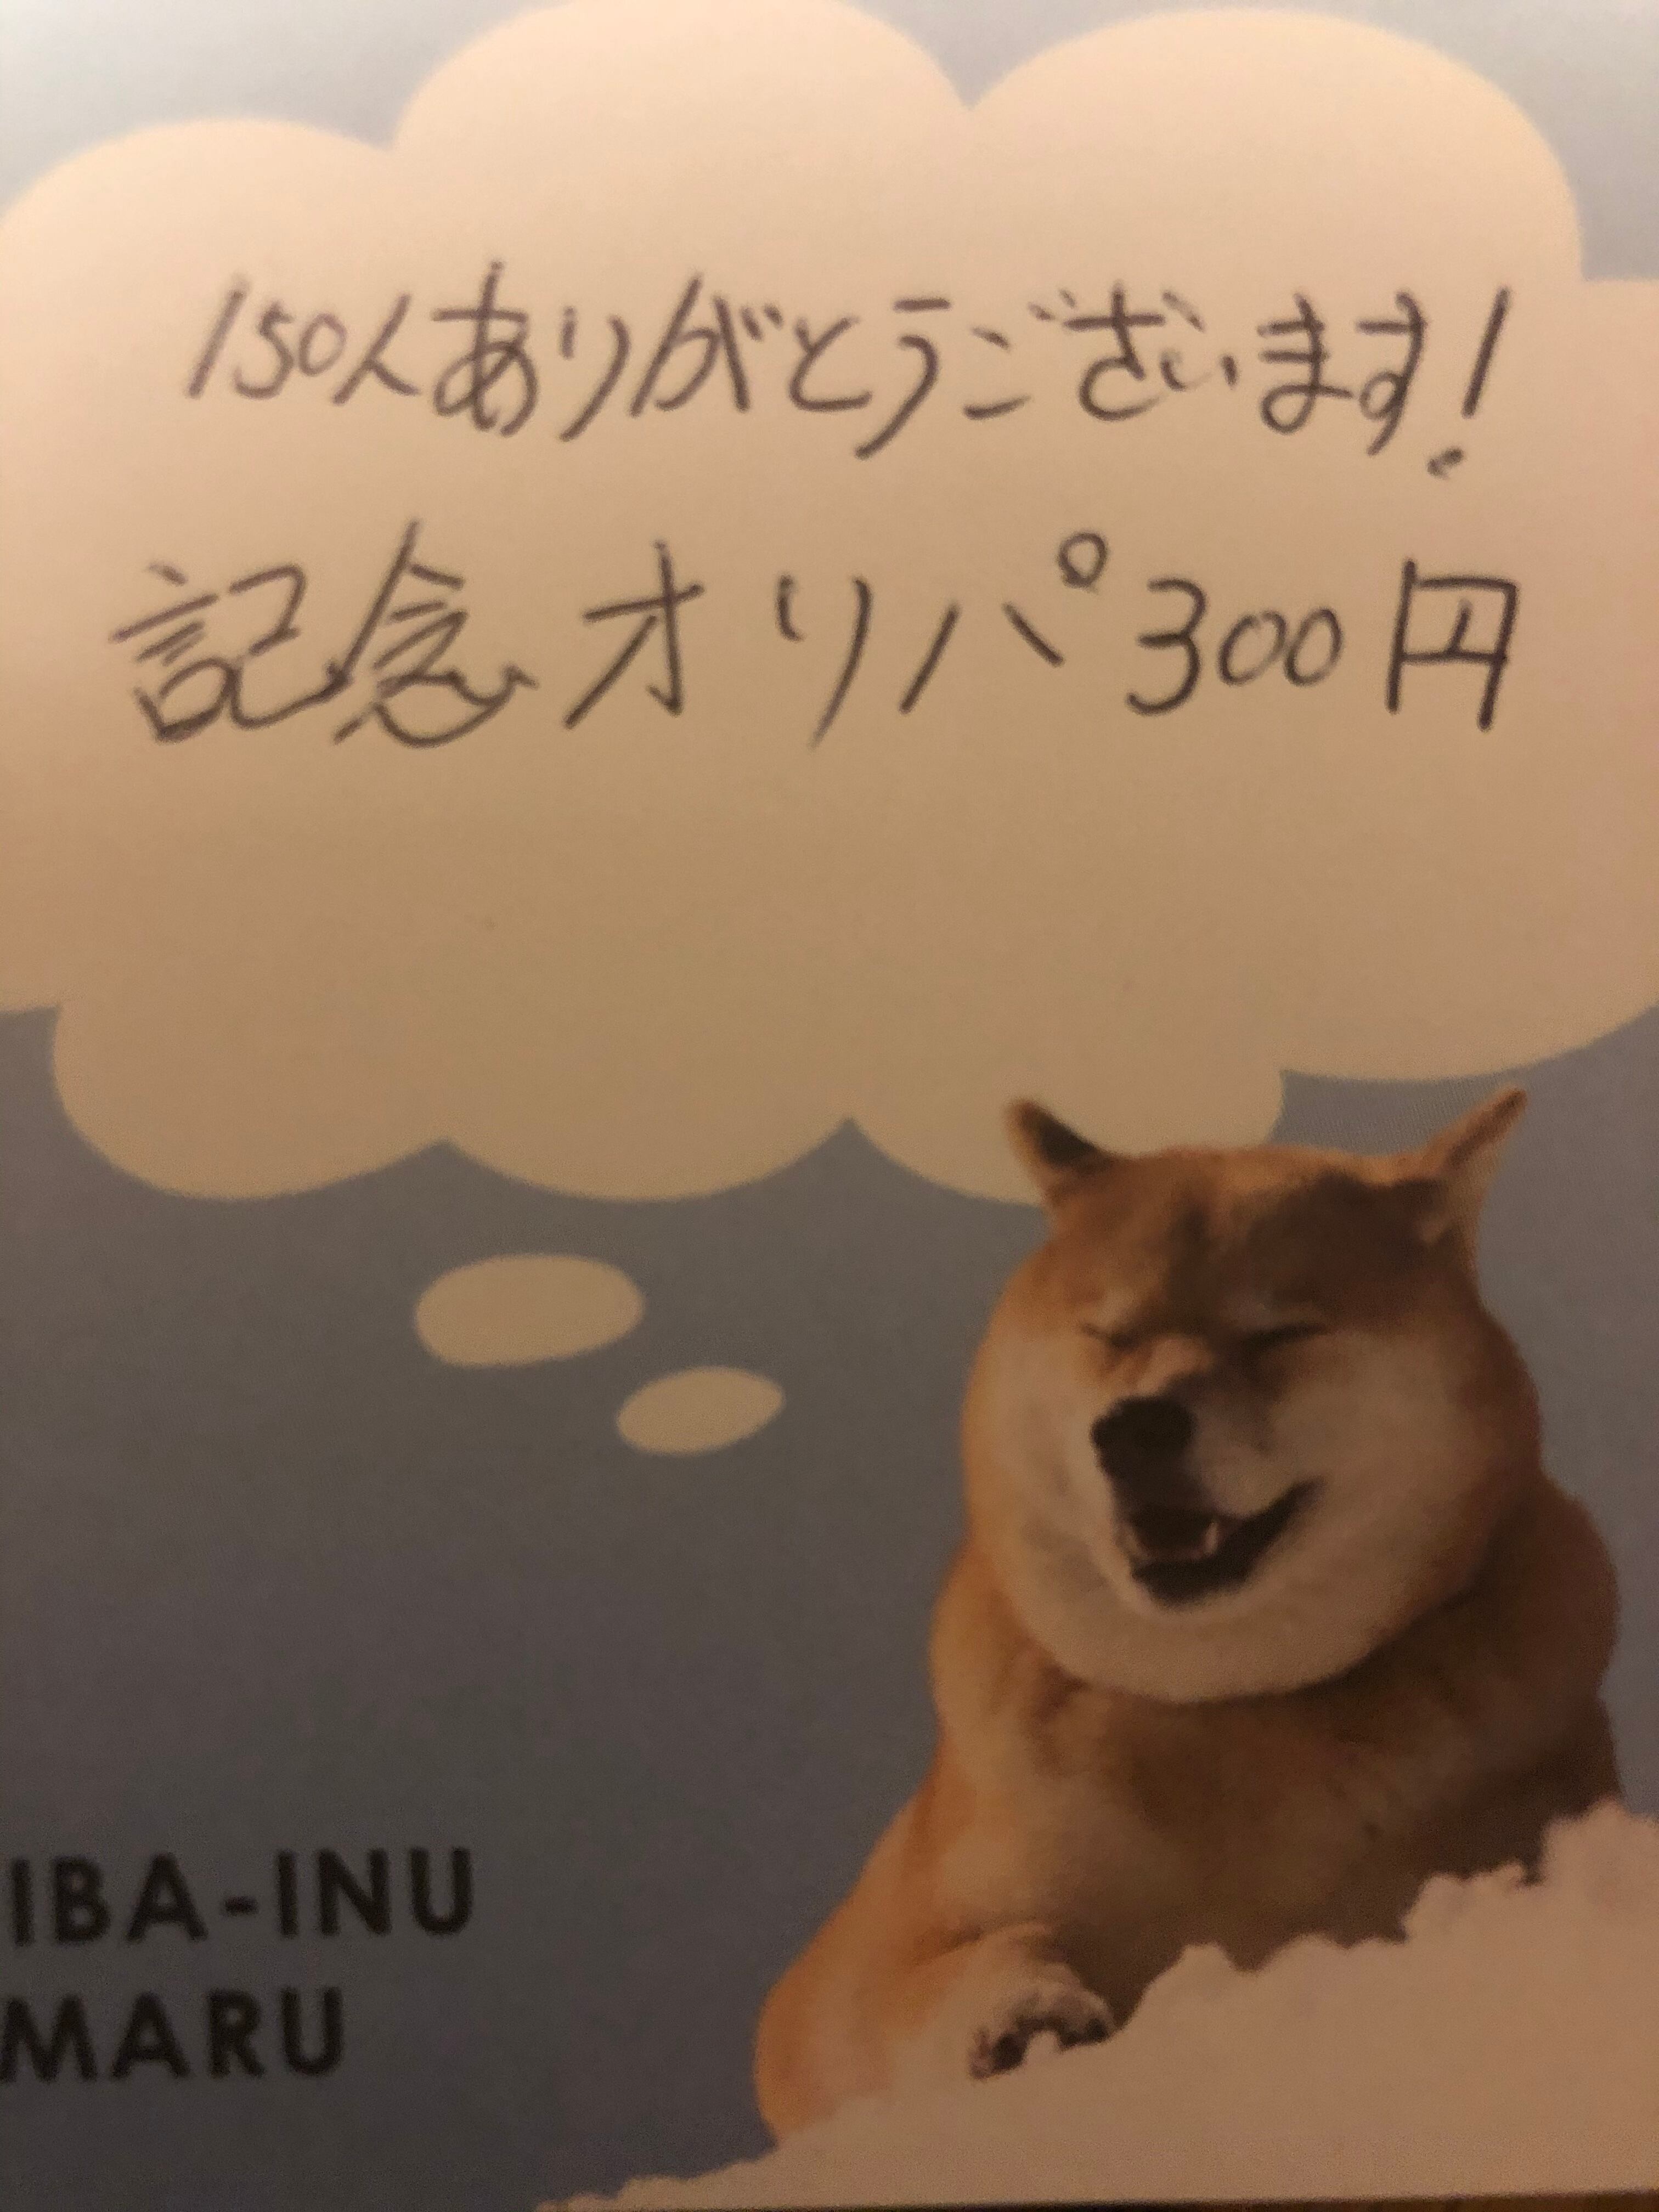 150人ありがとうございます!
記念オリパ300円
IBA-INU
MARU